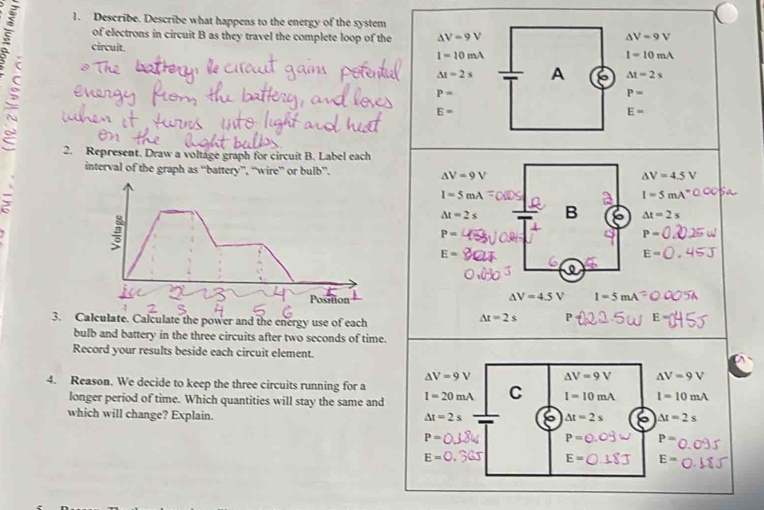 1. Describe. Describe what happens to the energy of the system
of electrons in circuit B as they travel the complete loop of the
circuit.
The battery, the circuit gains potential
energy from the battery, and loses
when it turns into light and heat
on the light bulbs
2. Represent. Draw a voltage graph for circuit B. Label each
interval of the graph as “battery”, “wire” or bulb”.
Voltage
Position
1 2 3 4 5 6
3. Calculate. Calculate the power and the energy use of each
bulb and battery in the three circuits after two seconds of time.
Record your results beside each circuit element.
4. Reason. We decide to keep the three circuits running for a
longer period of time. Which quantities will stay the same and
which will change? Explain.
ΔV = 9 V
I = 10 mA
Δt = 2 s
P =
E =
A
ΔV = 9 V
I = 10 mA
Δt = 2 s
P =
E =
ΔV = 9 V
I = 5 mA
Δt = 2 s
P =
E =
B
ΔV = 4.5 V
I = 5 mA = 0.005A
Δt = 2 s
P =
E = 0.45J
ΔV = 4.5 V I = 5 mA = 0.005A
Δt = 2 s P E =
ΔV = 9 V
I = 20 mA
Δt = 2 s
P = 0.18W
E = 0.36J
C
ΔV = 9 V
I = 10 mA
Δt = 2 s
P = 0.09W
E = 0.18J
ΔV = 9 V
I = 10 mA
Δt = 2 s
P = 0.09J
E = 0.18J